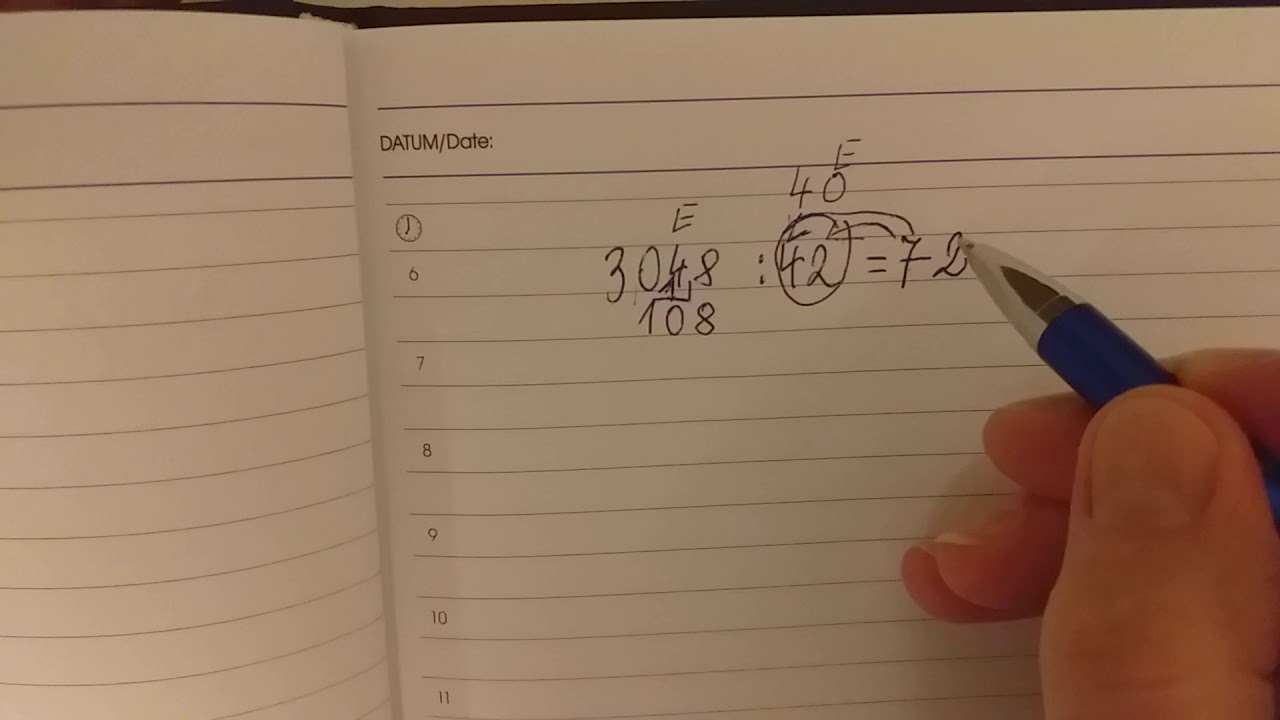 DATUM/Date:
E
40
E
6
3048 : 42 = 72
108
7
8
9
10
11